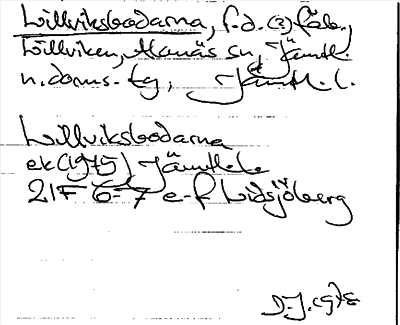 Lillviksbodarna, f.d. (?) fäb.,
Lillviken, Alanäs sn, Jämtl.
n. doms. tg, Jämtl. l.
Lillviksbodarna
ek (1975) Jämtl. l.
21F 6-7 e-f Lidsjöberg
D.J. 1978